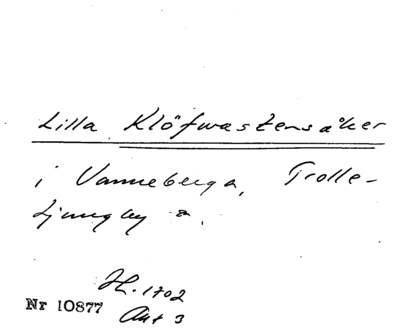 Lilla Klöfwastensåker
i Vanneberga, Trolle-
Ljungby s.
Jb. 1702
Nr 10877
Akt 3